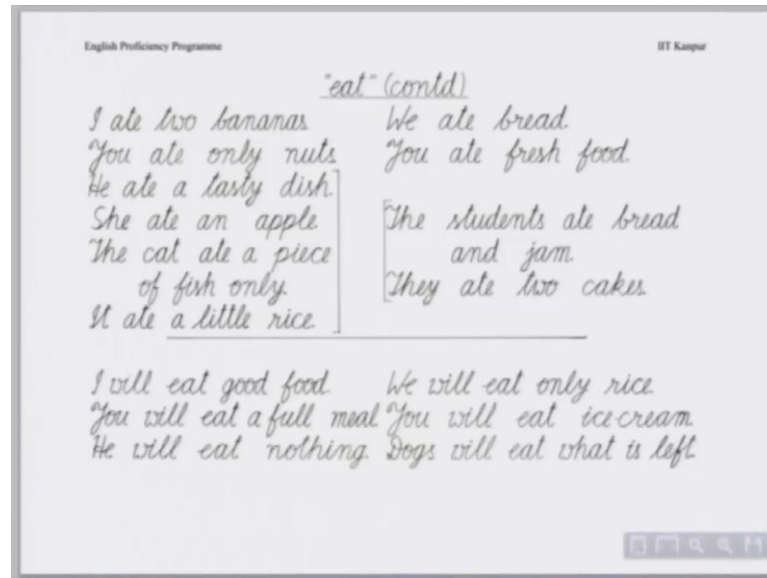 English Proficiency Programme
IIT Kanpur
"eat" (contd)
I ate two bananas
You ate only nuts
He ate a tasty dish.
She ate an apple
The cat ate a piece
of fish only.
It ate a little rice
We ate bread.
You ate fresh food.
The students ate bread
and jam.
They ate two cakes.
I will eat good food.
You will eat a full meal
He will eat nothing.
We will eat only rice.
You will eat ice-cream.
Dogs will eat what is left.